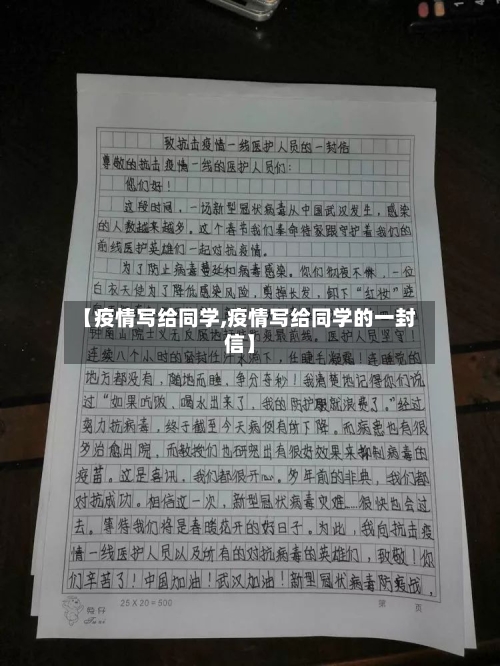 致抗击疫情一线医护人员的一封信
尊敬的抗击疫情一线的医护人员们：
您们好！
这段时间，一场新型冠状病毒从中国武汉发生，感染
的人数越来越多。这个春节我们奉命待家跟守护着我们的
前线医护英雄们一起对抗疫情。
为了防止病毒蔓延和病毒感染。你们彻夜不休，一位
白衣天使为了降低感染风险，剪掉长发，卸下“红妆”
【疫情写给同学,疫情写给同学的一封
信】
连续八个小时的
地方都没有，随地而睡，争分夺秒！我清楚地记得你们说
过“如果吃饭，喝水出来了，我的防护服就浪费了。”经过
努力抗病毒，终于截至今天病例有所下降，而病患也有很
多治愈出院，而教授们也研究出有很好效果来抑制病毒的
疫苗。这是喜讯，我们都很开心。多年前的非典，我们都
对抗成功。相信这一次，新型冠状病毒灾难……很快也会过
去。等待我们将是春暖花开的好日子。为此，我向抗击疫
情一线医护人员以及所有的对抗病毒的英雄们，致敬！你
们辛苦了！中国加油！武汉加油！新型冠状病毒防疫战。
25 X 20 = 500
第 页